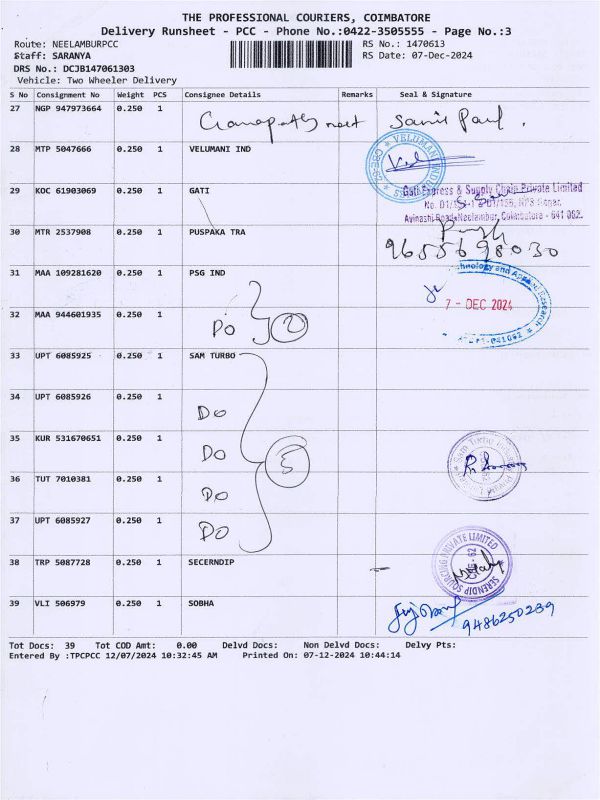 THE PROFESSIONAL COURIERS, COIMBATORE
Delivery Runsheet - PCC - Phone No.:0422-3505555 - Page No.:3
Route: NEELAMBURPCC RS No.: 1470613
Staff: SARANYA RS Date: 07-Dec-2024
DRS No.: DCJB147061303
Vehicle: Two Wheeler Delivery
S No Consignment No Weight PCS Consignee Details Remarks Seal & Signature
27 NGP 947973664 0.250 1
28 MTP 5047666 0.250 1 VELUMANI IND
29 KOC 61903069 0.250 1 GATI
Gati Express & Supply Chain Private Limited
30 MTR 2537908 0.250 1 PUSPAKA TRA
9655698030
31 MAA 109281620 0.250 1 PSG IND
7 - DEC 2024
32 MAA 944601935 0.250 1 DO 2
33 UPT 6085925 0.250 1 SAM TURBO
34 UPT 6085926 0.250 1 Do
35 KUR 531670651 0.250 1 Do 5
36 TUT 7010381 0.250 1 Do
37 UPT 6085927 0.250 1 Do
38 TRP 5087728 0.250 1 SECERNDIP
SERENDIP SOURCING PRIVATE LIMITED
39 VLI 506979 0.250 1 SOBHA
9486250239
Tot Docs: 39 Tot COD Amt: 0.00 Delvd Docs: Non Delvd Docs: Delvy Pts:
Entered By :TPCPCC 12/07/2024 10:32:45 AM Printed On: 07-12-2024 10:44:14